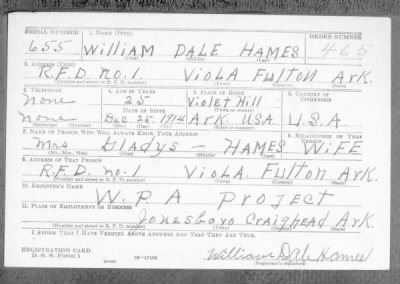 SERIAL NUMBER 1. NAME (Print) ORDER NUMBER
655 William DALE HAMES 465
(First) (Middle) (Last)
2. ADDRESS (Print)
R.F.D. no. 1 Viola Fulton Ark.
(Number and street or R. F. D. number) (Town) (County) (State)
3. TELEPHONE 4. AGE IN YEARS 5. PLACE OF BIRTH 6. COUNTRY OF CITIZENSHIP
None 25 Violet Hill
DATE OF BIRTH (Town or county)
None Dec. 25 1914 Ark. USA. U.S.A.
(Mo.) (Day) (Yr.) (State or country)
7. NAME OF PERSON WHO WILL ALWAYS KNOW YOUR ADDRESS 8. RELATIONSHIP OF THAT PERSON
Mrs Gladys - HAMES WIFE
(Mr., Mrs., Miss) (First) (Middle) (Last)
9. ADDRESS OF THAT PERSON
R.F.D. no. 1 Viola. Fulton Ark.
(Number and street or R. F. D. number) (Town) (County) (State)
10. EMPLOYER'S NAME
W.P.A Project
11. PLACE OF EMPLOYMENT OR BUSINESS
Jonesboro Craighead Ark.
(Number and street or R. F. D. number) (Town) (County) (State)
I AFFIRM THAT I HAVE VERIFIED ABOVE ANSWERS AND THAT THEY ARE TRUE.
REGISTRATION CARD
D. S. S. FORM 1 William Dale Hames
(Registrant's signature)